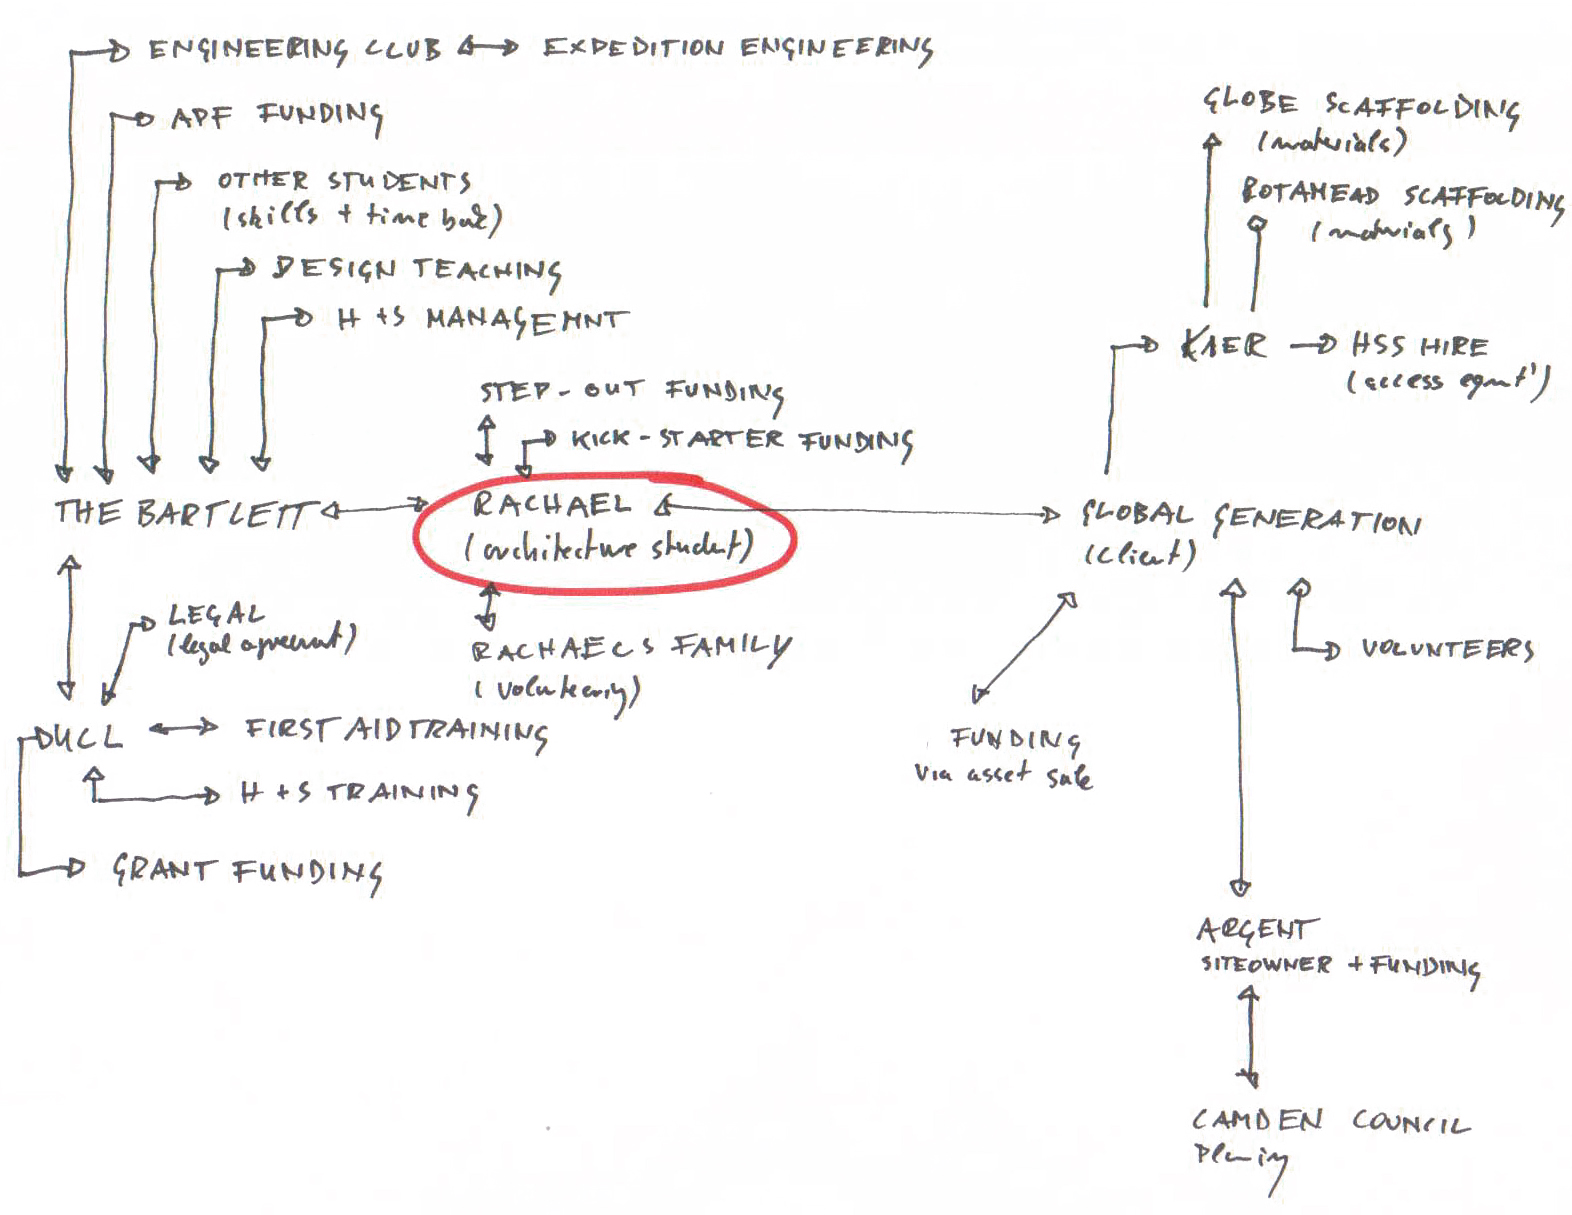 ENGINEERING CLUB EXPEDITION ENGINEERING
APF FUNDING
OTHER STUDENTS
(skills + time bank)
DESIGN TEACHING
H + S MANAGEMNT
STEP-OUT FUNDING
KICK-STARTER FUNDING
THE BARTLETT
RACHAEL
(architecture student)
RACHAELS FAMILY
(volunteering)
LEGAL
(legal agreement)
UCL
FIRST AID TRAINING
H + S TRAINING
GRANT FUNDING
GLOBE SCAFFOLDING
(materials)
ROTAHEAD SCAFFOLDING
(materials)
KIER HSS HIRE
(access eqmt')
GLOBAL GENERATION
(client)
VOLUNTEERS
FUNDING
via asset sale
ARGENT
SITEOWNER + FUNDING
CAMDEN COUNCIL
Planning